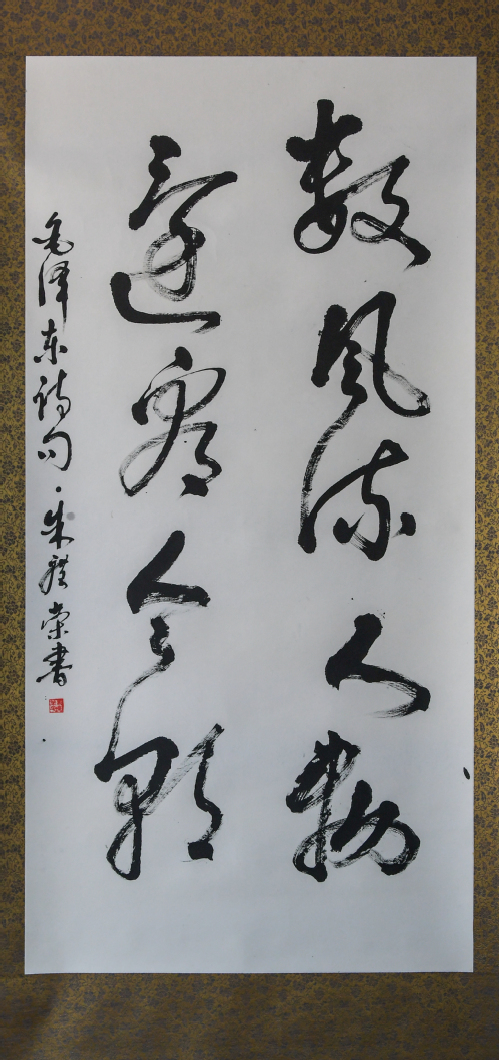 数风流人物
还看今朝
毛泽东诗句·朱
荣书